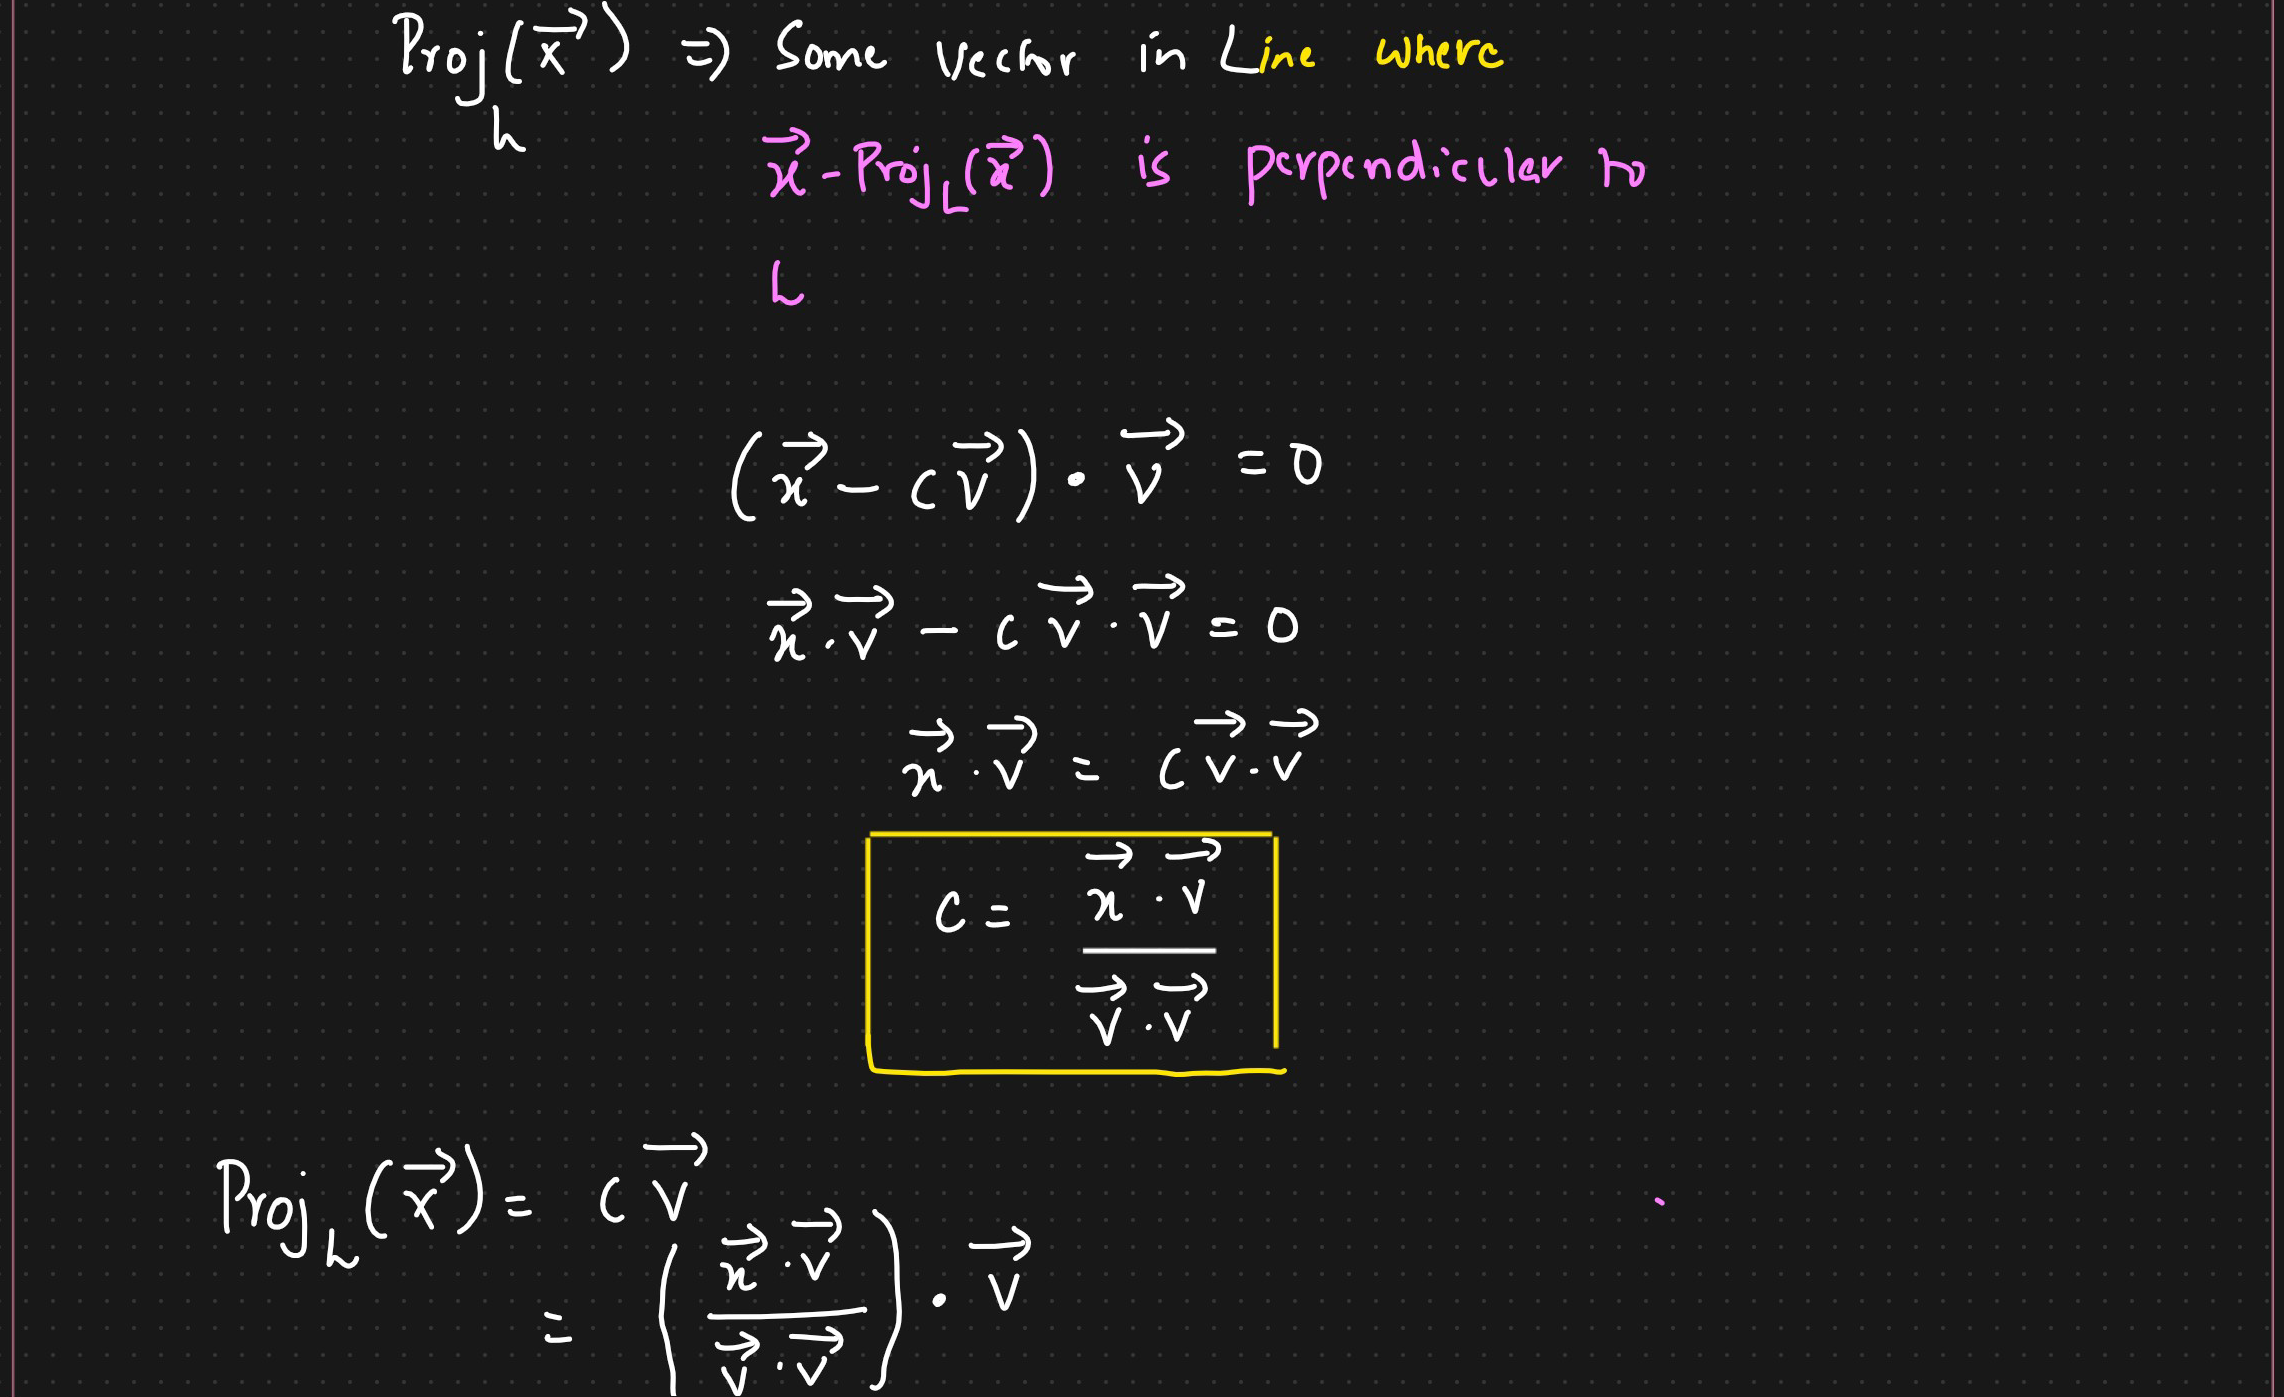 Proj_L(x⃗) => Some Vector in Line where
x⃗ - Proj_L(x⃗) is perpendicular to
L
(x⃗ - cv⃗) · v⃗ = 0
x⃗ · v⃗ - c v⃗ · v⃗ = 0
x⃗ · v⃗ = c v⃗ · v⃗
c = (x⃗ · v⃗) / (v⃗ · v⃗)
Proj_L(x⃗) = c v⃗
= ((x⃗ · v⃗) / (v⃗ · v⃗)) · v⃗